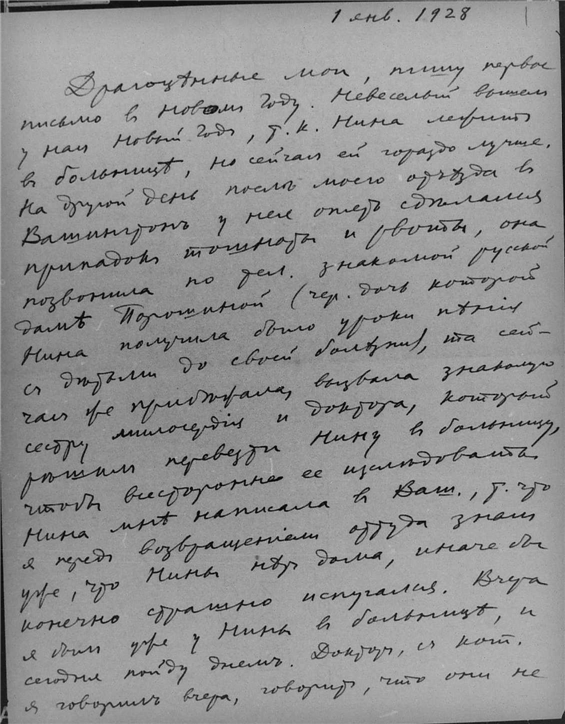 1 янв. 1928
Драгоцѣнные мои, пишу первое
письмо в Новом году. Невеселый вышел
у нас Новый Годъ, т. к. Нина лежитъ
в больницѣ, но сейчас ей гораздо лучше.
На другой день послѣ моего отъѣзда в
Вашингтонъ у нея опять сдѣлался
припадокъ тошноты и рвоты, она
позвонила по тел. знакомой русской
дамѣ Порошиной (чер. дочь которой
Нина получила было уроки пѣнія
съ дѣтьми до своей болѣзни), та сей-
час же прибѣжала, вызвала знакомую
сестру милосердія и доктора, который
рѣшил перевезти Нину в больницу,
чтобы всесторонне ее изслѣдовать.
Нина мнѣ написала в Ваш., т. что
я передъ возвращеніем оттуда знал
уже, что Нины нѣтъ дома, иначе бы
конечно страшно испугался. Вчера
я был уже у Нины в больницѣ, и
сегодня пойду днемъ. Докторъ, съ кот.
я говорилъ вчера, говоритъ, что они не